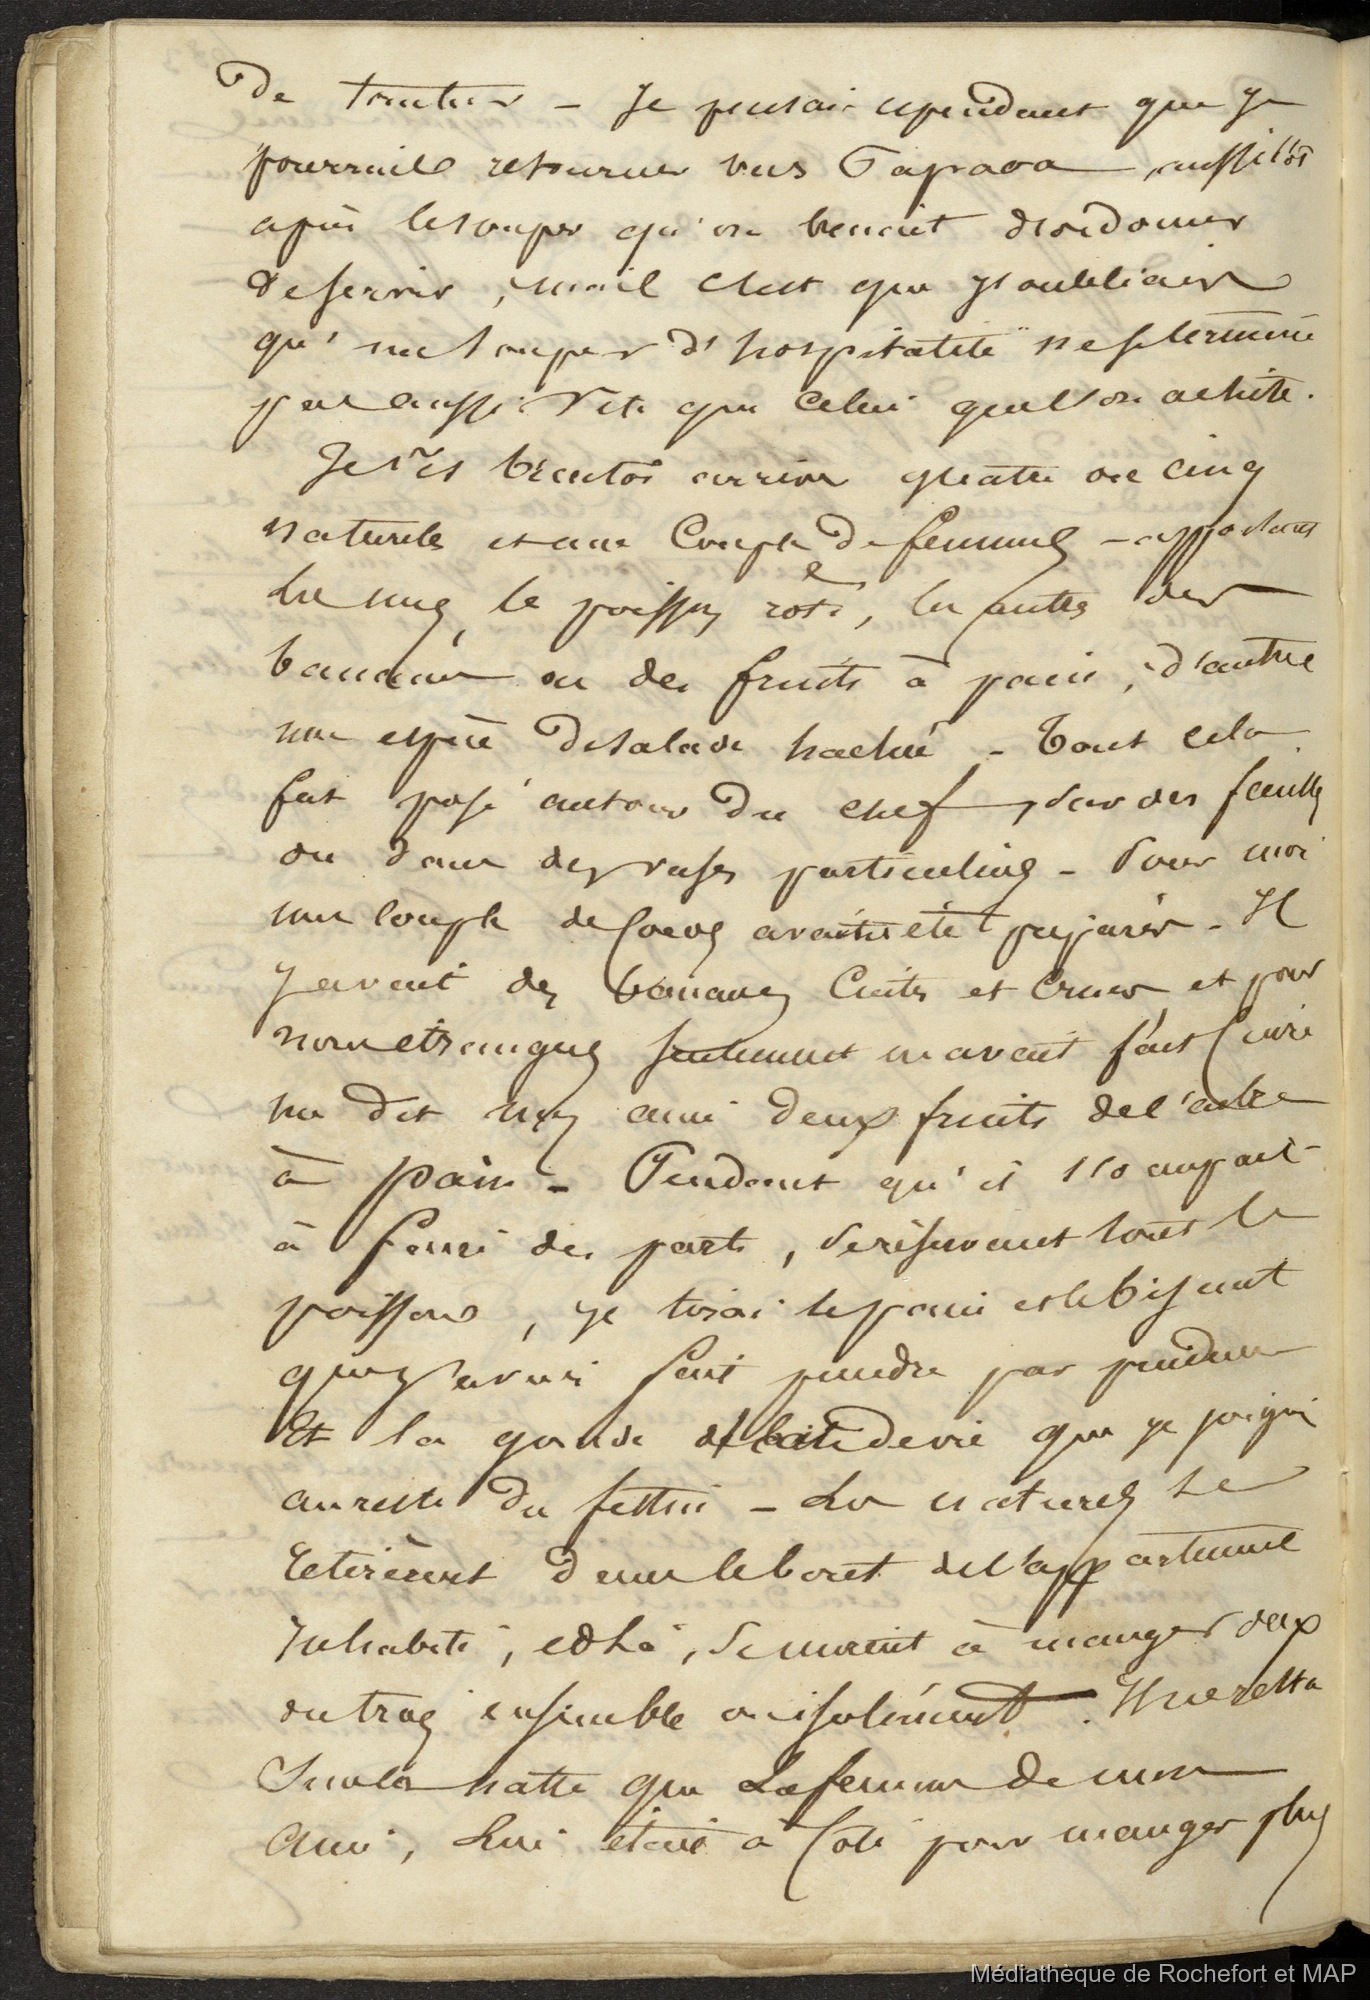 De trinker - Je pensais cependant que je
pourrais retourner vers Taparoa, aussitôt
après le souper qu'on venait d'ordonner
de servir, mais c'est que j'oubliais
qu'un souper d'hospitalité ne se termine
pas aussi vite que celui que l'on achète.
Je vis bientôt arriver quatre ou cinq
naturels et une couple de femmes - apportant
les uns, le poisson roti, les autres des
bananes ou des fruits à pain, d'autres
une espèce de salade hachée - Tout cela
fut posé autour du chef, sur des feuilles
ou dans des vases particuliers - Pour moi
une couple de cocos avaient été préparés - Il
y avait des bananes cuites et crues et pour
nous etrangers seulement m'avait fait cuire
me dit mon ami deux fruits de l'arbre
à pain - Pendant qu'il s'occupait
à faire des parts, se réservant tout le
poisson, je tirai le pain et le biscuit
que j'avais fait prendre par prudence
Et la gourde d'eau de vie que je joignis
au reste du festin - Les naturels se
retirèrent dans le bout de l'appartement
inhabité, et là, se mirent à manger deux
ou trois ensemble ou isolément. Il ne resta
sur la natte que la femme de mon
ami, lui était à côté pour manger plus
Médiathèque de Rochefort et MAP